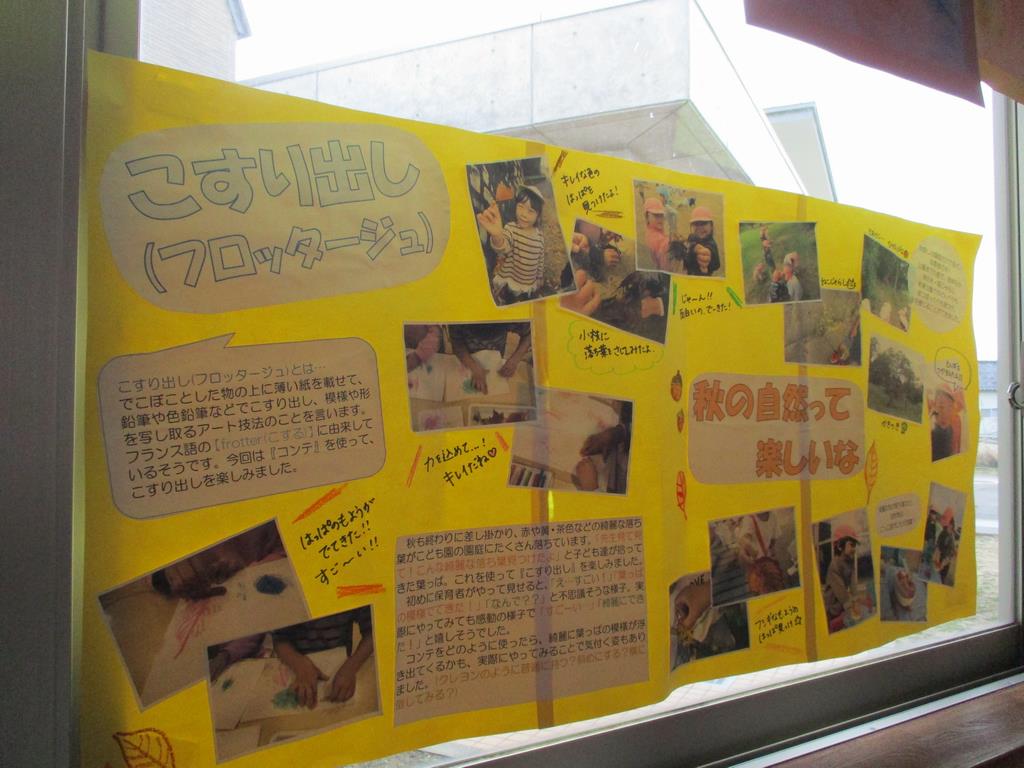 こすり出し
(フロッタージュ)
こすり出し(フロッタージュ)とは…
でこぼことした物の上に薄い紙を載せて、
鉛筆や色鉛筆などでこすり出し、模様や形
を写し取るアート技法のことを言います。
フランス語の【frotter(こする)】に由来して
いるそうです。今回は『コンテ』を使って、
こすり出しを楽しみました。
はっぱのもようが
でてきた!!
すご〜い!!
キレイな色の
はっぱを
見つけたよ!
小枝に
落ち葉をさしてみたよ。
じゃ〜ん!!
面白いの、できた!
力を込めて…!
キレイだね♡
秋も終わりに差し掛かり、赤や黄・茶色などの綺麗な落ち
葉がこども園の園庭にたくさん落ちています。「先生見て見
て!こんな綺麗な落ち葉見つけたよ」と子ども達が拾って
きた葉っぱ。これを使って『こすり出し』を楽しみました。
初めに保育者がやって見せると、「え…すごい!」「葉っぱ
の模様でてきた!」「なんで??」と不思議そうな様子。実
際にやってみても感動の様子で「すご〜い…」「綺麗にでき
た!」と嬉しそうでした。
コンテをどのように使ったら、綺麗に葉っぱの模様が浮
き出てくるかも、実際にやってみることで気付く姿もあり
ました。(クレヨンのように普通に持つ?斜めにする?横に
倒してみる?)
秋の自然って
楽しいな